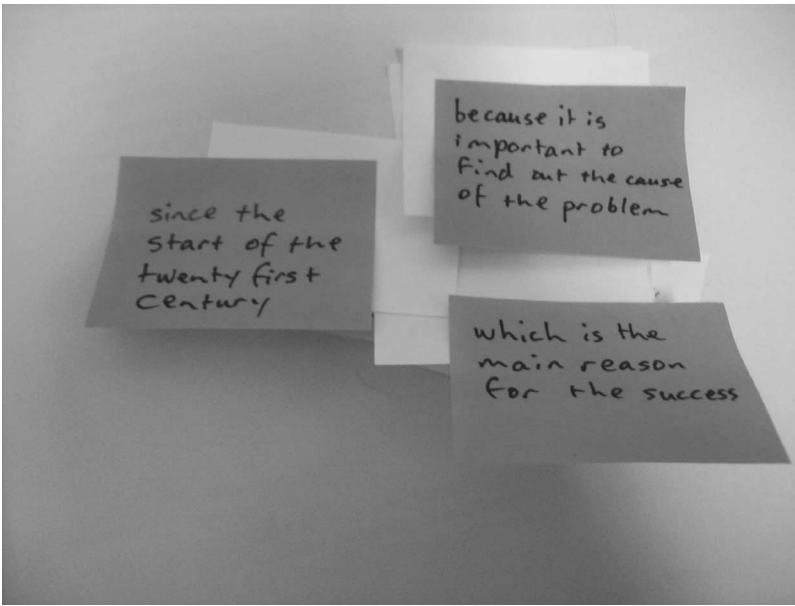 since the
start of the
twenty first
century
because it is
important to
find out the cause
of the problem
which is the
main reason
for the success